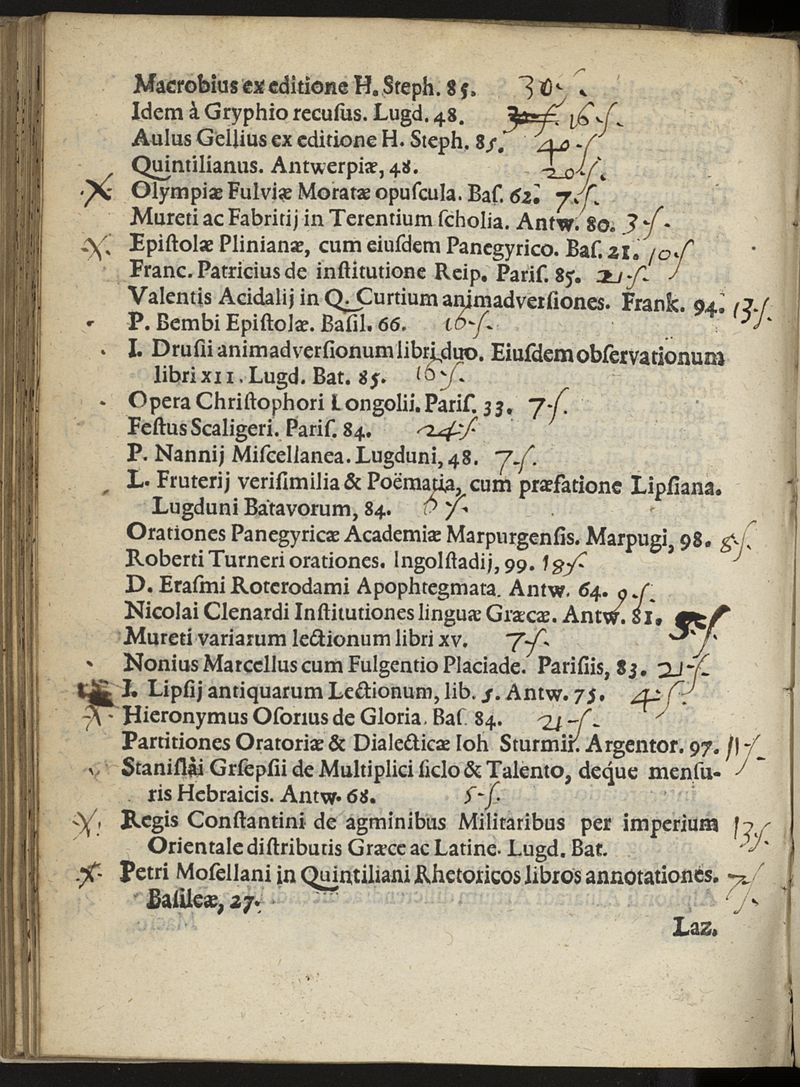 Macrobius ex editione H. Steph. 85. 30-ſ.
Idem à Gryphio recuſus. Lugd. 48. 16-ſ.
Aulus Gellius ex editione H. Steph. 85. 40-ſ
Quintilianus. Antwerpiæ, 48. 20ſ.
X Olympiæ Fulviæ Moratæ opuſcula. Baſ. 62. 7-ſ.
Mureti ac Fabritij in Terentium ſcholia. Antw. 80. 3-ſ-
X. Epiſtolæ Plinianæ, cum eiuſdem Panegyrico. Baſ. 21. 10-ſ
Franc. Patricius de inſtitutione Reip. Pariſ. 85. 21-ſ-
Valentis Acidalij in Q. Curtium animadverſiones. Frank. 94. 13-ſ.
P. Bembi Epiſtolæ. Baſil. 66. 16-ſ-
I. Druſii animadverſionum libri duo. Eiuſdem obſervationum
libri XII. Lugd. Bat. 85. 16-ſ.
Opera Chriſtophori Longolii. Pariſ. 33. 7-ſ.
Feſtus Scaligeri. Pariſ. 84. 24-ſ-
P. Nannij Miſcellanea. Lugduni, 48. 7-ſ.
L. Fruterij veriſimilia & Poëmatia, cum præfatione Lipſiana.
Lugduni Batavorum, 84. 6-ſ-
Orationes Panegyricæ Academiæ Marpurgenſis. Marpugi, 98. 8-ſ.
Roberti Turneri orationes. Ingolſtadij, 99. 18ſ-
D. Eraſmi Roterodami Apophtegmata. Antw. 64. 9-ſ.
Nicolai Clenardi Inſtitutiones linguæ Græcæ. Antw. 81.
Mureti variarum lectionum libri xv. 7-ſ-
Nonius Marcellus cum Fulgentio Placiade. Pariſiis, 83. 21-ſ-
I. Lipſij antiquarum Lectionum, lib. 5. Antw. 75. 4-ſ-
X - Hieronymus Oſorius de Gloria. Baſ. 84. 21-ſ-
Partitiones Oratoriæ & Dialecticæ Ioh Sturmii. Argentor. 97. 11-ſ-
Staniſlai Grſepſii de Multiplici ſiclo & Talento, deque menſu-
ris Hebraicis. Antw. 68. 5-ſ.
X. Regis Conſtantini de agminibus Militaribus per imperium 13-ſ
Orientale diſtributis Græce ac Latine. Lugd. Bat.
X. Petri Moſellani in Quintiliani Rhetoricos libros annotationes. 7-ſ
Baſileæ, 27.
Laz.